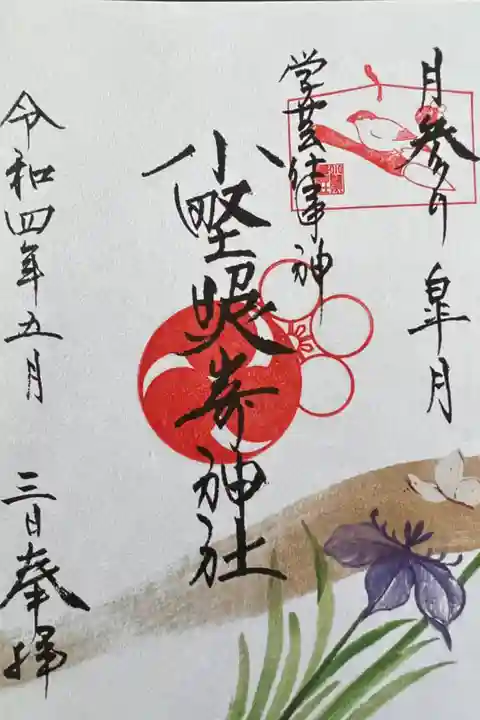 月参り 皐月
学芸仕事神
小野照崎神社
令和四年五月
三日奉拝